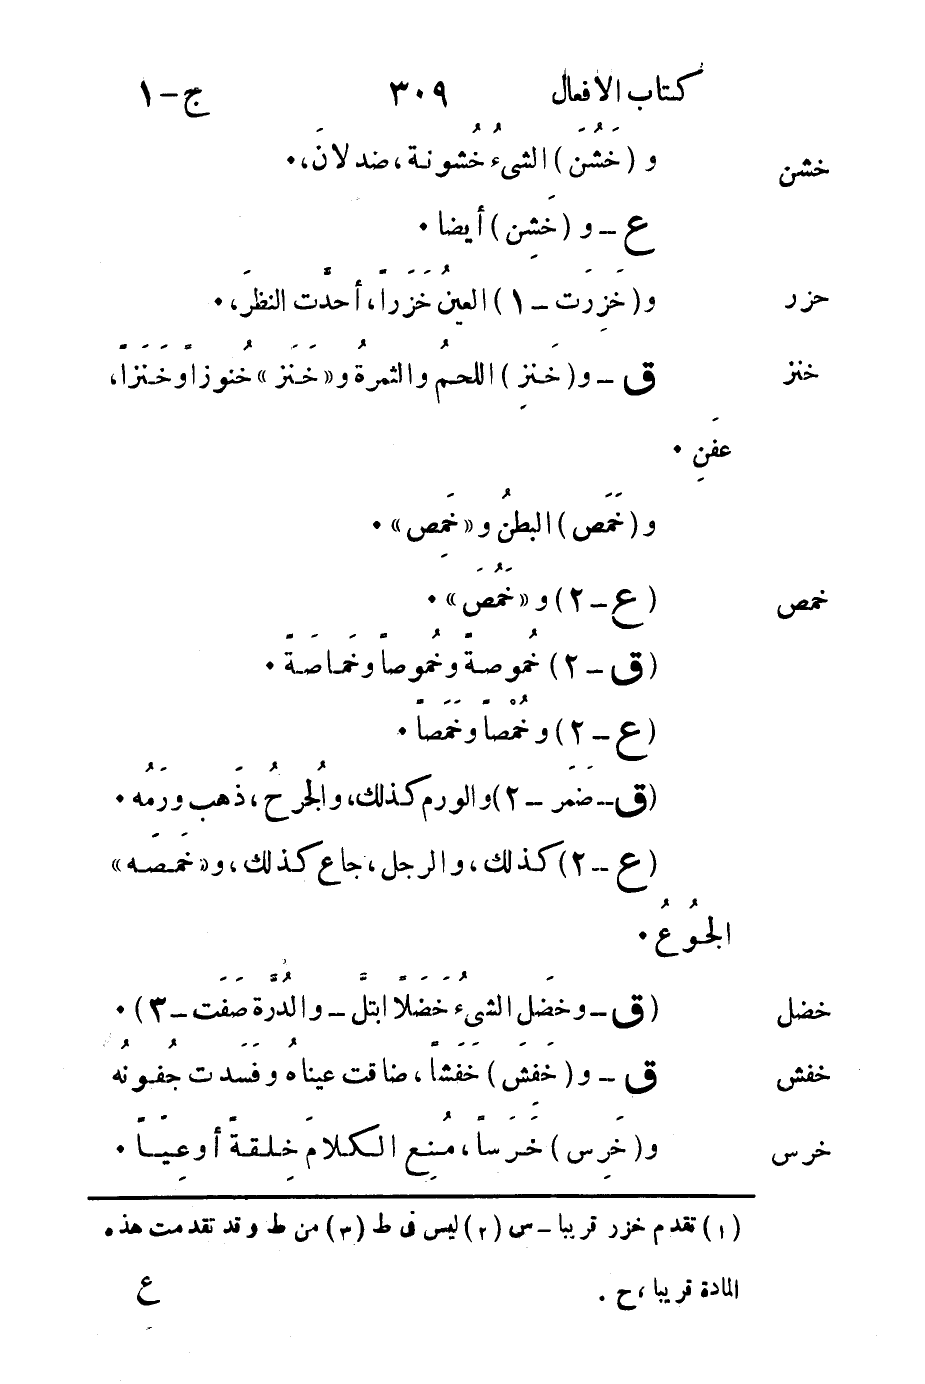 كتاب الافعال ٣٠٩ ج-١
خشن و (خَشُنَ) الشىءُ خُشونة، ضد لانَ،.
ع – و (خَشِن) أيضا.
حزر و(خَزِرَت – ١) العينُ خَزَراً، أحدَّت النظرَ،.
خنز ق – و(خَنِز) اللحمُ والثمرةُ و«خَنَز» خُنوزاً وخَنَزاً،
عفَنِ.
و(خَمَص) البطنُ و«خَمِص».
خمص (ع – ٢) و «خَمُصَ».
(ق – ٢) خُموصةً وخُموصاً وخَماصَةً.
(ع – ٢) و خُمْصاً وخَمَصاً.
(ق – ضَمَر – ٢) والورم كذلك، والجُرحُ، ذَهب ورَمُه.
(ع – ٢) كذلك، والرجل، جاع كذلك، و«خَمَصَه»
الجُوعُ.
خضل (ق – وخضَل الشىءُ خَضَلاً ابتلَّ – والدُّرَّة صَفَت – ٣).
خفش ق – و (خَفَش) خَفَشاً، ضاقت عيناهُ وفَسَدت جُفونُه
خرس و(خَرِس) خَرَساً، مُنِع الكلامَ خِلقةً أوعِيّاً.
(١) تقدم خزر قريبا – س (٢) ليس فى ط (٣) من ط وقد تقدمت هذه
المادة قريبا، ح. ع